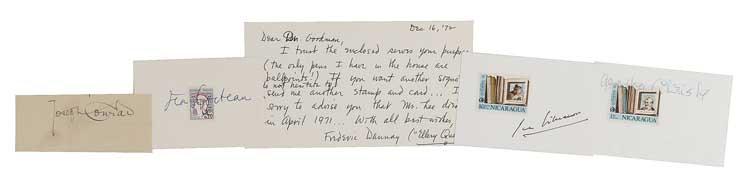 Joseph Conrad
Jean Cocteau
Dec 16, '72
Dear Mr. Goodman,
I trust the enclosed serves your purpose
(the only pens I have in the house are
ballpoints!) If you want another signa
do not hesitate to
send me another stamp and card... I
sorry to advise you that Mr. Lee died
in April 1971... With all best wishes,
Frederic Dannay ("Ellery Que
NICARAGUA
NICARAGUA